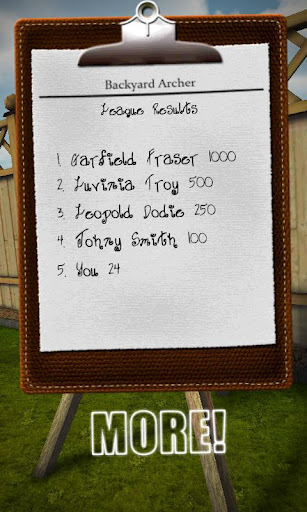 Backyard Archer
League Results
1. Garfield Fraser 1000
2. Luvinia Troy 500
3. Leopold Dodie 250
4. Johny Smith 100
5. You 24
MORE!